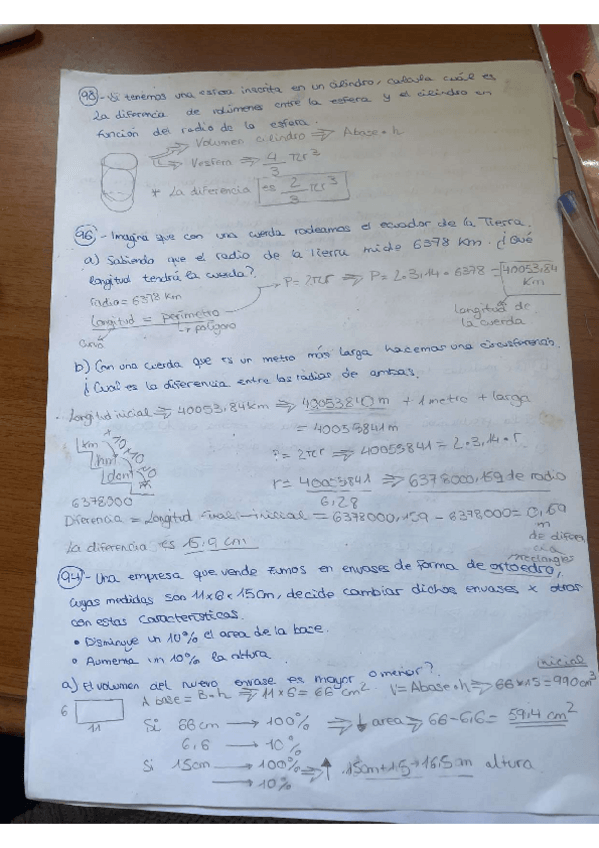 98 - Si tenemos una esfera inscrita en un cilindro, calcula cuál es
la diferencia de volúmenes entre la esfera y el cilindro en
función del radio de la esfera.
Volumen cilindro ⇒ Abase · h
Vesfera ⇒ 4/3 πr³
* La diferencia es 2/3 πr³
96 - Imagina que con una cuerda rodeamos el ecuador de la Tierra.
a) Sabiendo que el radio de la Tierra mide 6378 km. ¿Qué
longitud tendrá la cuerda?
radio = 6378 km
P = 2πr ⇒ P = 2·3,14·6378 = 40053,84 Km
Longitud = perímetro
→ polígono
longitud de
la cuerda
b) Con una cuerda que es un metro más larga hacemos una circunferencia.
¿Cuál es la diferencia entre los radios de ambas.
Longitud inicial ⇒ 40053,84 km ⇒ 40053840 m + 1 metro + larga
= 40053841 m
km
hm
dam
P = 2πr ⇒ 40053841 = 2·3,14·r
r = 40053841 / 6,28 ⇒ 6378000,159 de radio
6378000
Diferencia = Longitud final - inicial = 6378000,159 - 6378000 = 0,159
m
de diferen
cia
La diferencia es 15,9 cm
rectángulos
94 - Una empresa que vende zumos en envases de forma de ortoedro,
cuyas medidas son 11x6x15cm, decide cambiar dichos envases x otros
con estas características.
• Disminuye un 10% el area de la base.
• Aumenta un 10% la altura.
a) El volumen del nuevo envase es mayor o menor?
inicial
A base = B·h ⇒ 11x6 = 66 cm² V = Abase·h ⇒ 66x15 = 990 cm³
6
11
Si 66 cm → 100% ⇒ ↓ area ⇒ 66-6,6 = 59,4 cm²
6,6 → 10%
Si 15cm → 100% ⇒ ↑ 15cm+1,5 → 16,5cm altura
→ 10%